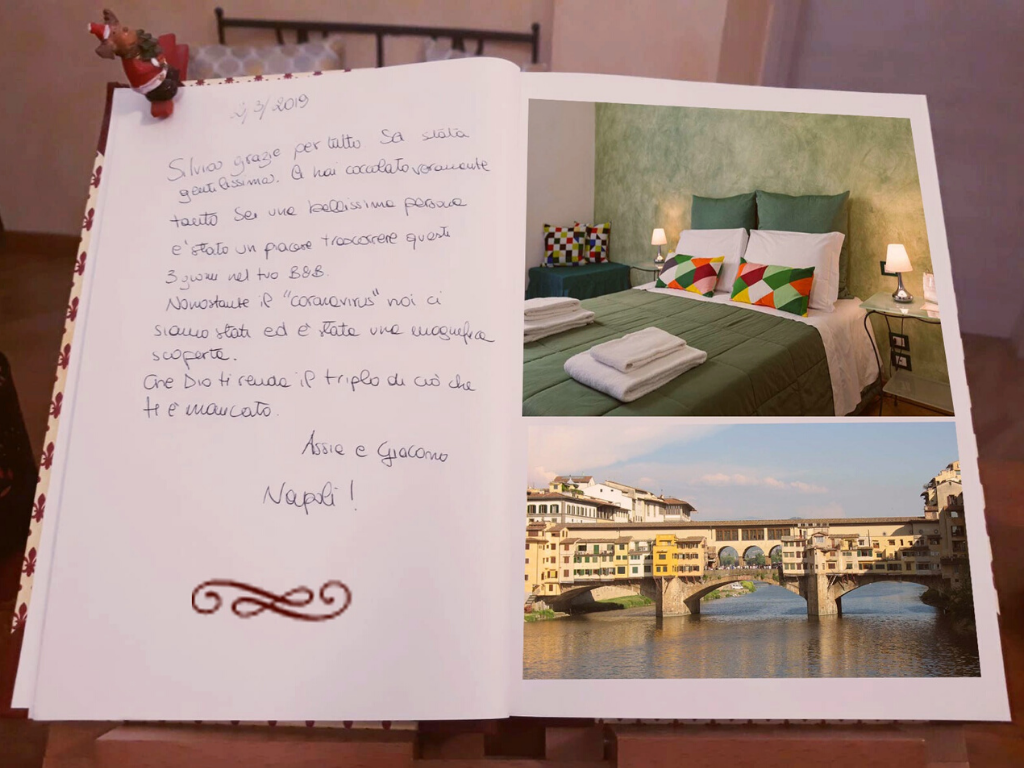 2/3/2019
Silvia grazie per tutto Sei stata
gentilissima. Ci hai coccolato veramente
tanto Sei una bellissima persona
e' stato un piacere trascorrere questi
3 giorni nel tuo B&B.
Nonostante il "coronavirus" noi ci
siamo stati ed è stata una magnifica
scoperta.
Che Dio ti renda il triplo di ciò che
ti è mancato.
Assia e Giacomo
Napoli!